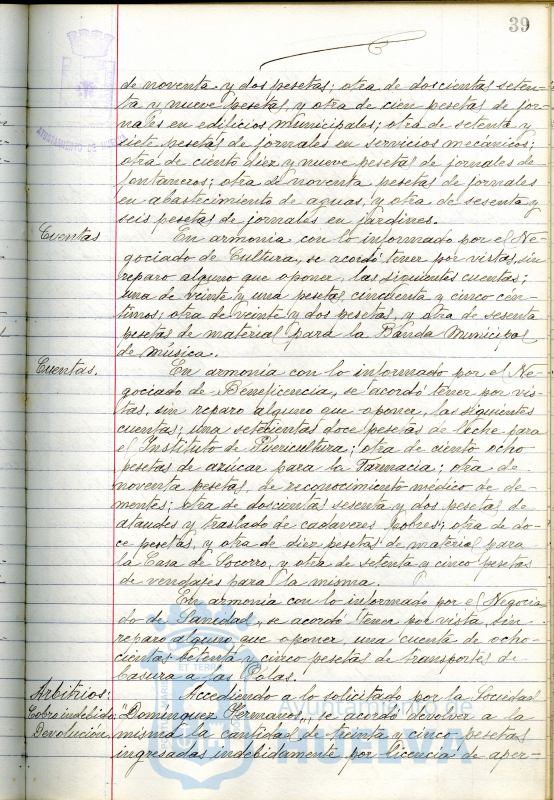 39
de noventa y dos pesetas; otra de doscientas seten-
ta y nueve pesetas, y otra de cien pesetas de jor-
nales en edificios municipales; otra de setenta y
siete pesetas de jornales en servicios mecánicos;
otra de ciento diez y nueve pesetas de jornales de
fontaneros; otra de noventa pesetas de jornales
en abastecimiento de aguas, y otra de sesenta y
seis pesetas de jornales en jardines.
Cuentas En armonía con lo informado por el Ne-
gociado de Cultura, se acordó tener por vistas, sin
reparo alguno que oponer, las siguientes cuentas;
una de veinte y una pesetas cincuenta y cinco cén-
timos; otra de veinte y dos pesetas, y otra de sesenta
pesetas de material para la Banda Municipal
de música.
Cuentas. En armonía con lo informado por el Ne-
gociado de Beneficencia, se acordó tener por vis-
tas, sin reparo alguno que oponer, las siguientes
cuentas; una setecientas doce pesetas de leche para
el Instituto de Puericultura; otra de ciento ocho
pesetas de azúcar para la Farmacia; otra de
noventa pesetas, de reconocimiento médico de de-
mentes; otra de doscientas sesenta y dos pesetas de
ataudes y traslado de cadaveres pobres; otra de do-
ce pesetas, y otra de diez pesetas de material para
la Casa de Socorro, y otra de setenta y cinco pesetas
de vendajes para la misma.
En armonía con lo informado por el Negocia-
do de Sanidad, se acordó tener por vista, sin
reparo alguno que oponer, una cuenta de ocho-
cientas setenta y cinco pesetas de transportes de
basura a las Polas.
Arbitrios: Accediendo a lo solicitado por la Sociedad
Cobro indebido "Dominguez Hermanos", se acordó devolver a la
Devolución. misma la cantidad de treinta y cinco pesetas
ingresadas indebidamente por licencia de aper-
AYUNTAMIENTO DE HUELVA
Ayuntamiento de
HUELVA